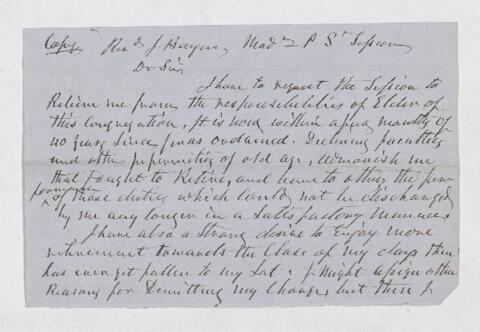 Copy, Revd J. Bayne, Mad P St Session
Dr Sir
I have to request the Session to
Relieve me from the responsibilities of Elder of
this congregation, It is now within a few months of
40 years since I was ordained. Declining faculties
and other infirmities of old age, admonish me
that I ought to Retire, and leave to others the
performance
of those duties which could not be discharged
by me any longer in a satisfactory manner.
I have also a strong desire to Enjoy more
retirement towards the Close of my days than
has ever yet fallen to my Lot. I might assign other
Reasons for Demitting my Charge, but these I